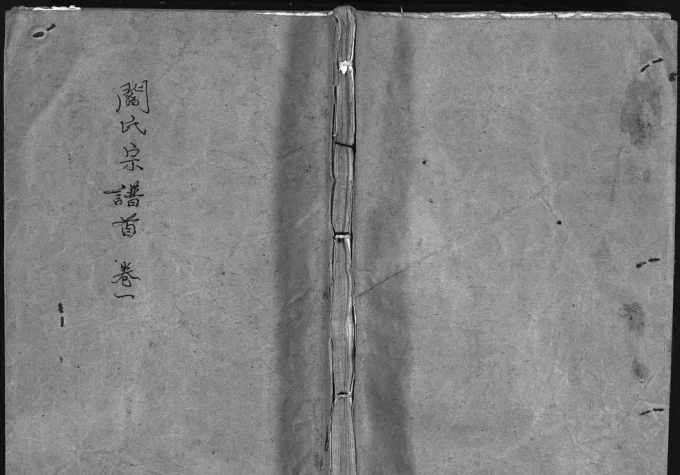 關氏宗譜首卷一